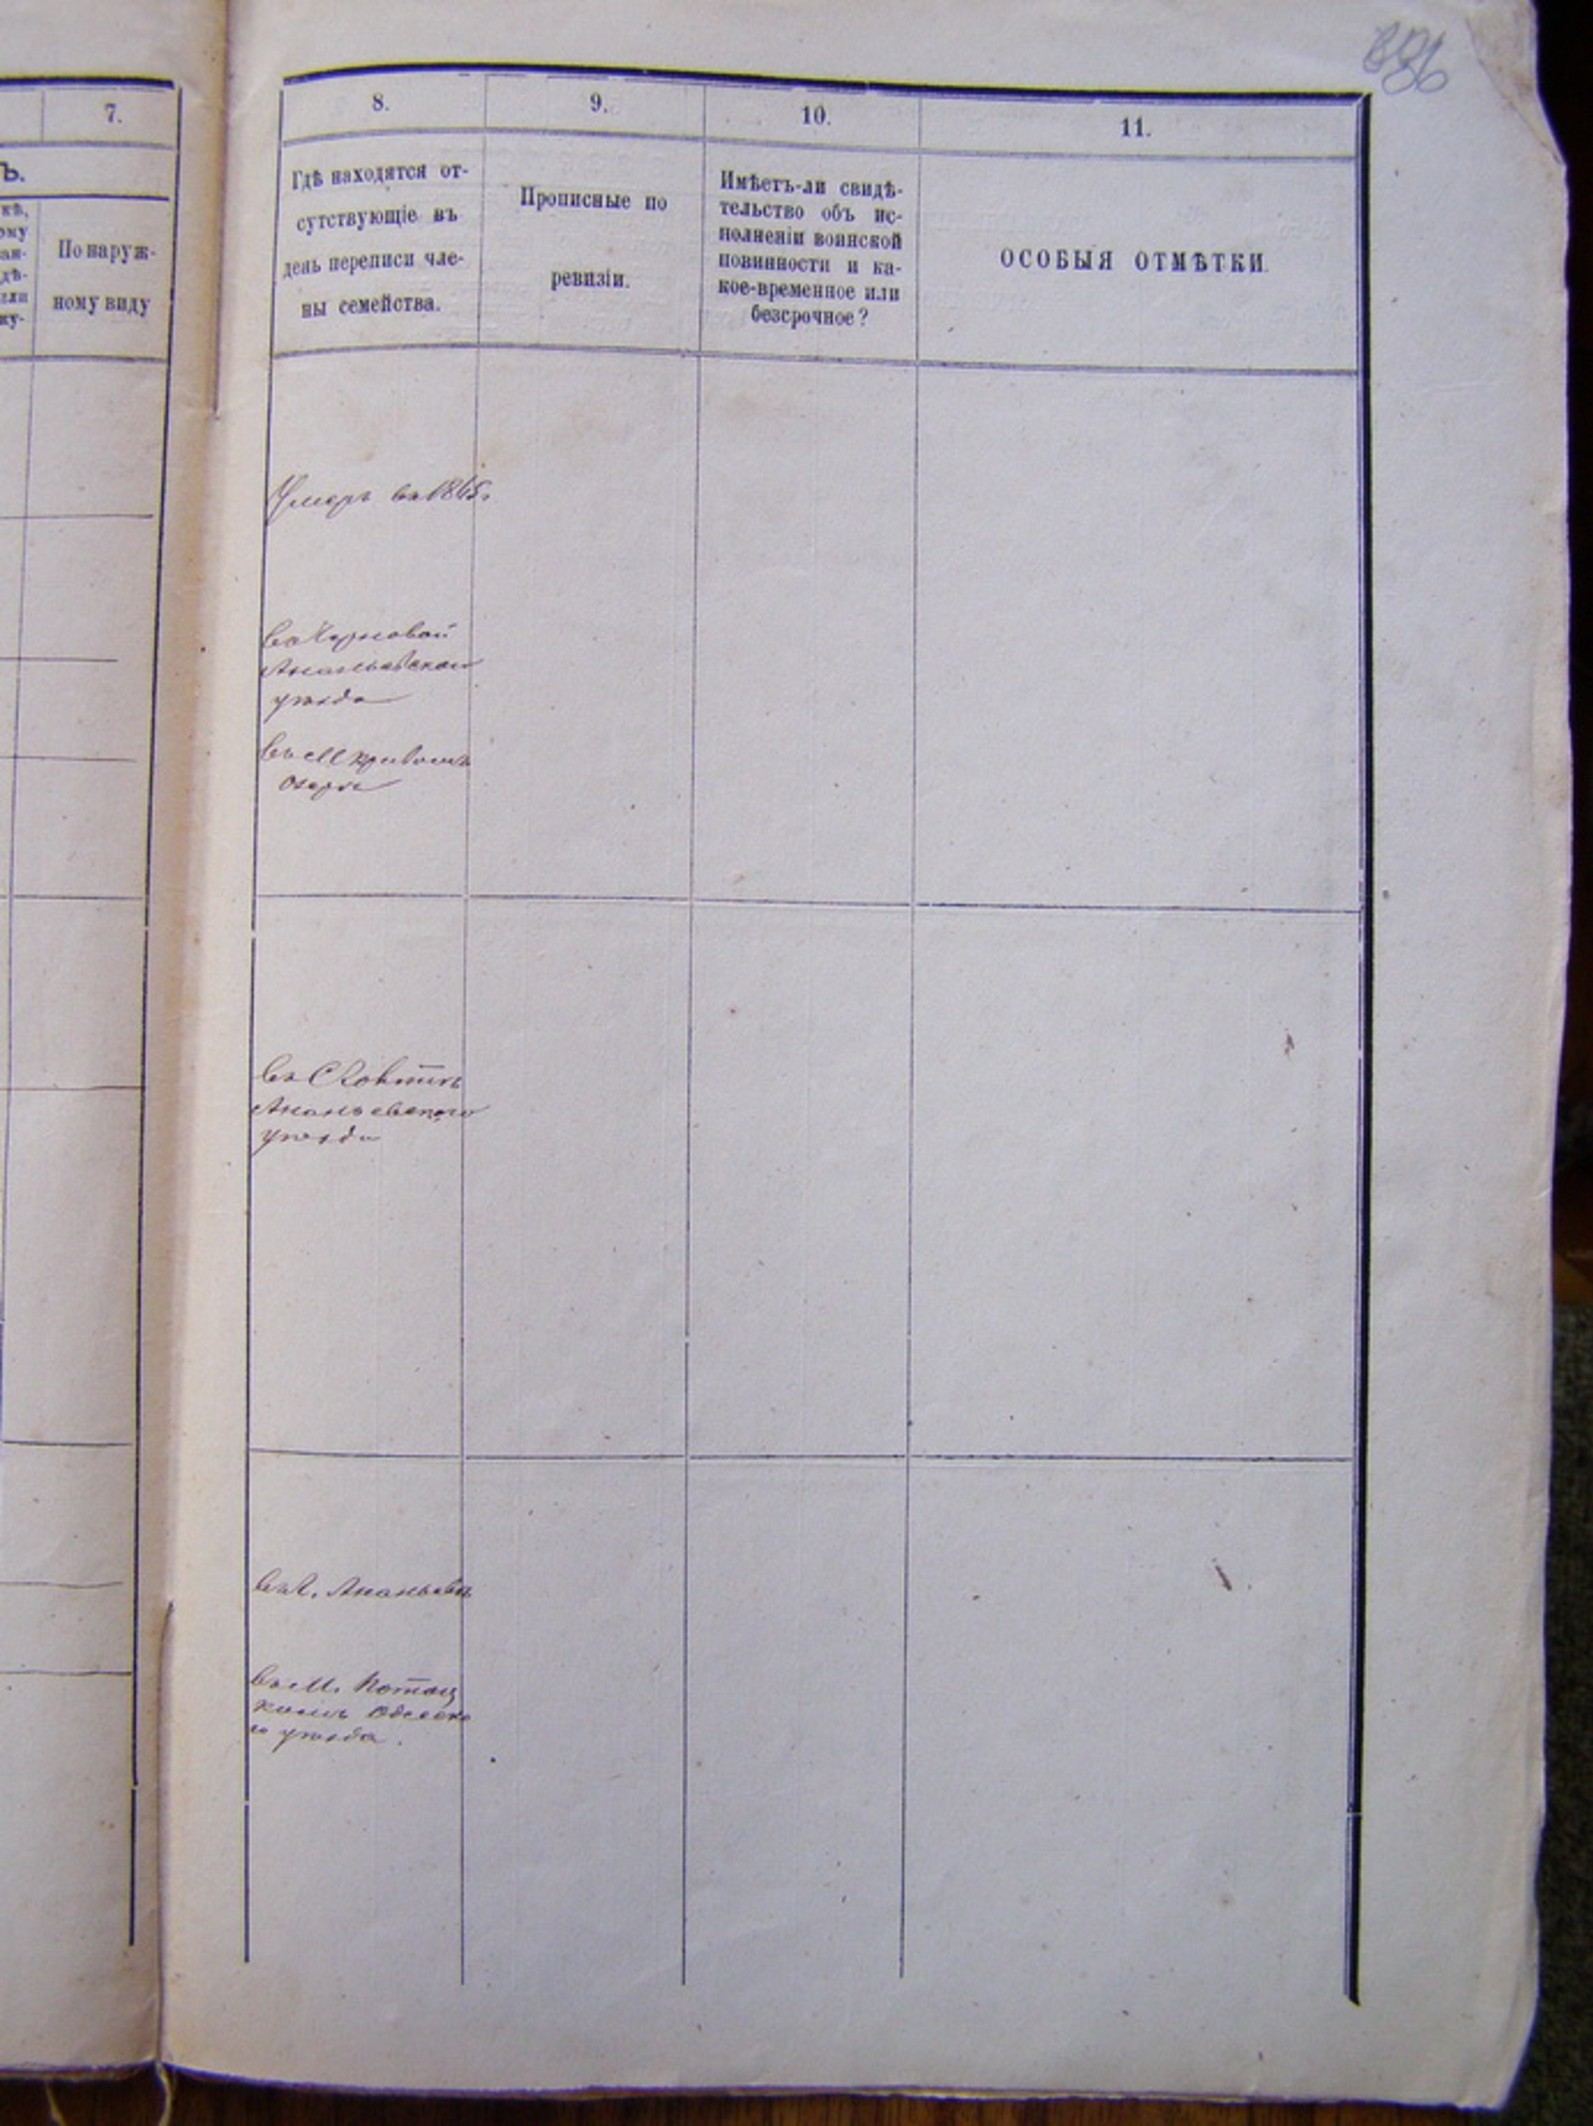 7.
Ъ.
кѣ,
ому
ан-
дѣ-
или
ку-
По наруж-
ному виду
8.
9.
10.
11.
Гдѣ находятся от-
сутствующіе въ
день переписи чле-
ны семейства.
Прописные по
ревизіи.
Имѣетъ-ли свидѣ-
тельство объ ис-
полненіи воинской
повинности и ка-
кое-временное или
безсрочное?
ОСОБЫЯ ОТМѢТКИ.
Умеръ въ
Ананьевскаго
уѣзда
въ М Кривомъ
Озерѣ
въ С
Ананьевского
уѣзда
въ г. Ананьевѣ
въ М. Потоц
комъ Одесско
го уѣзда.